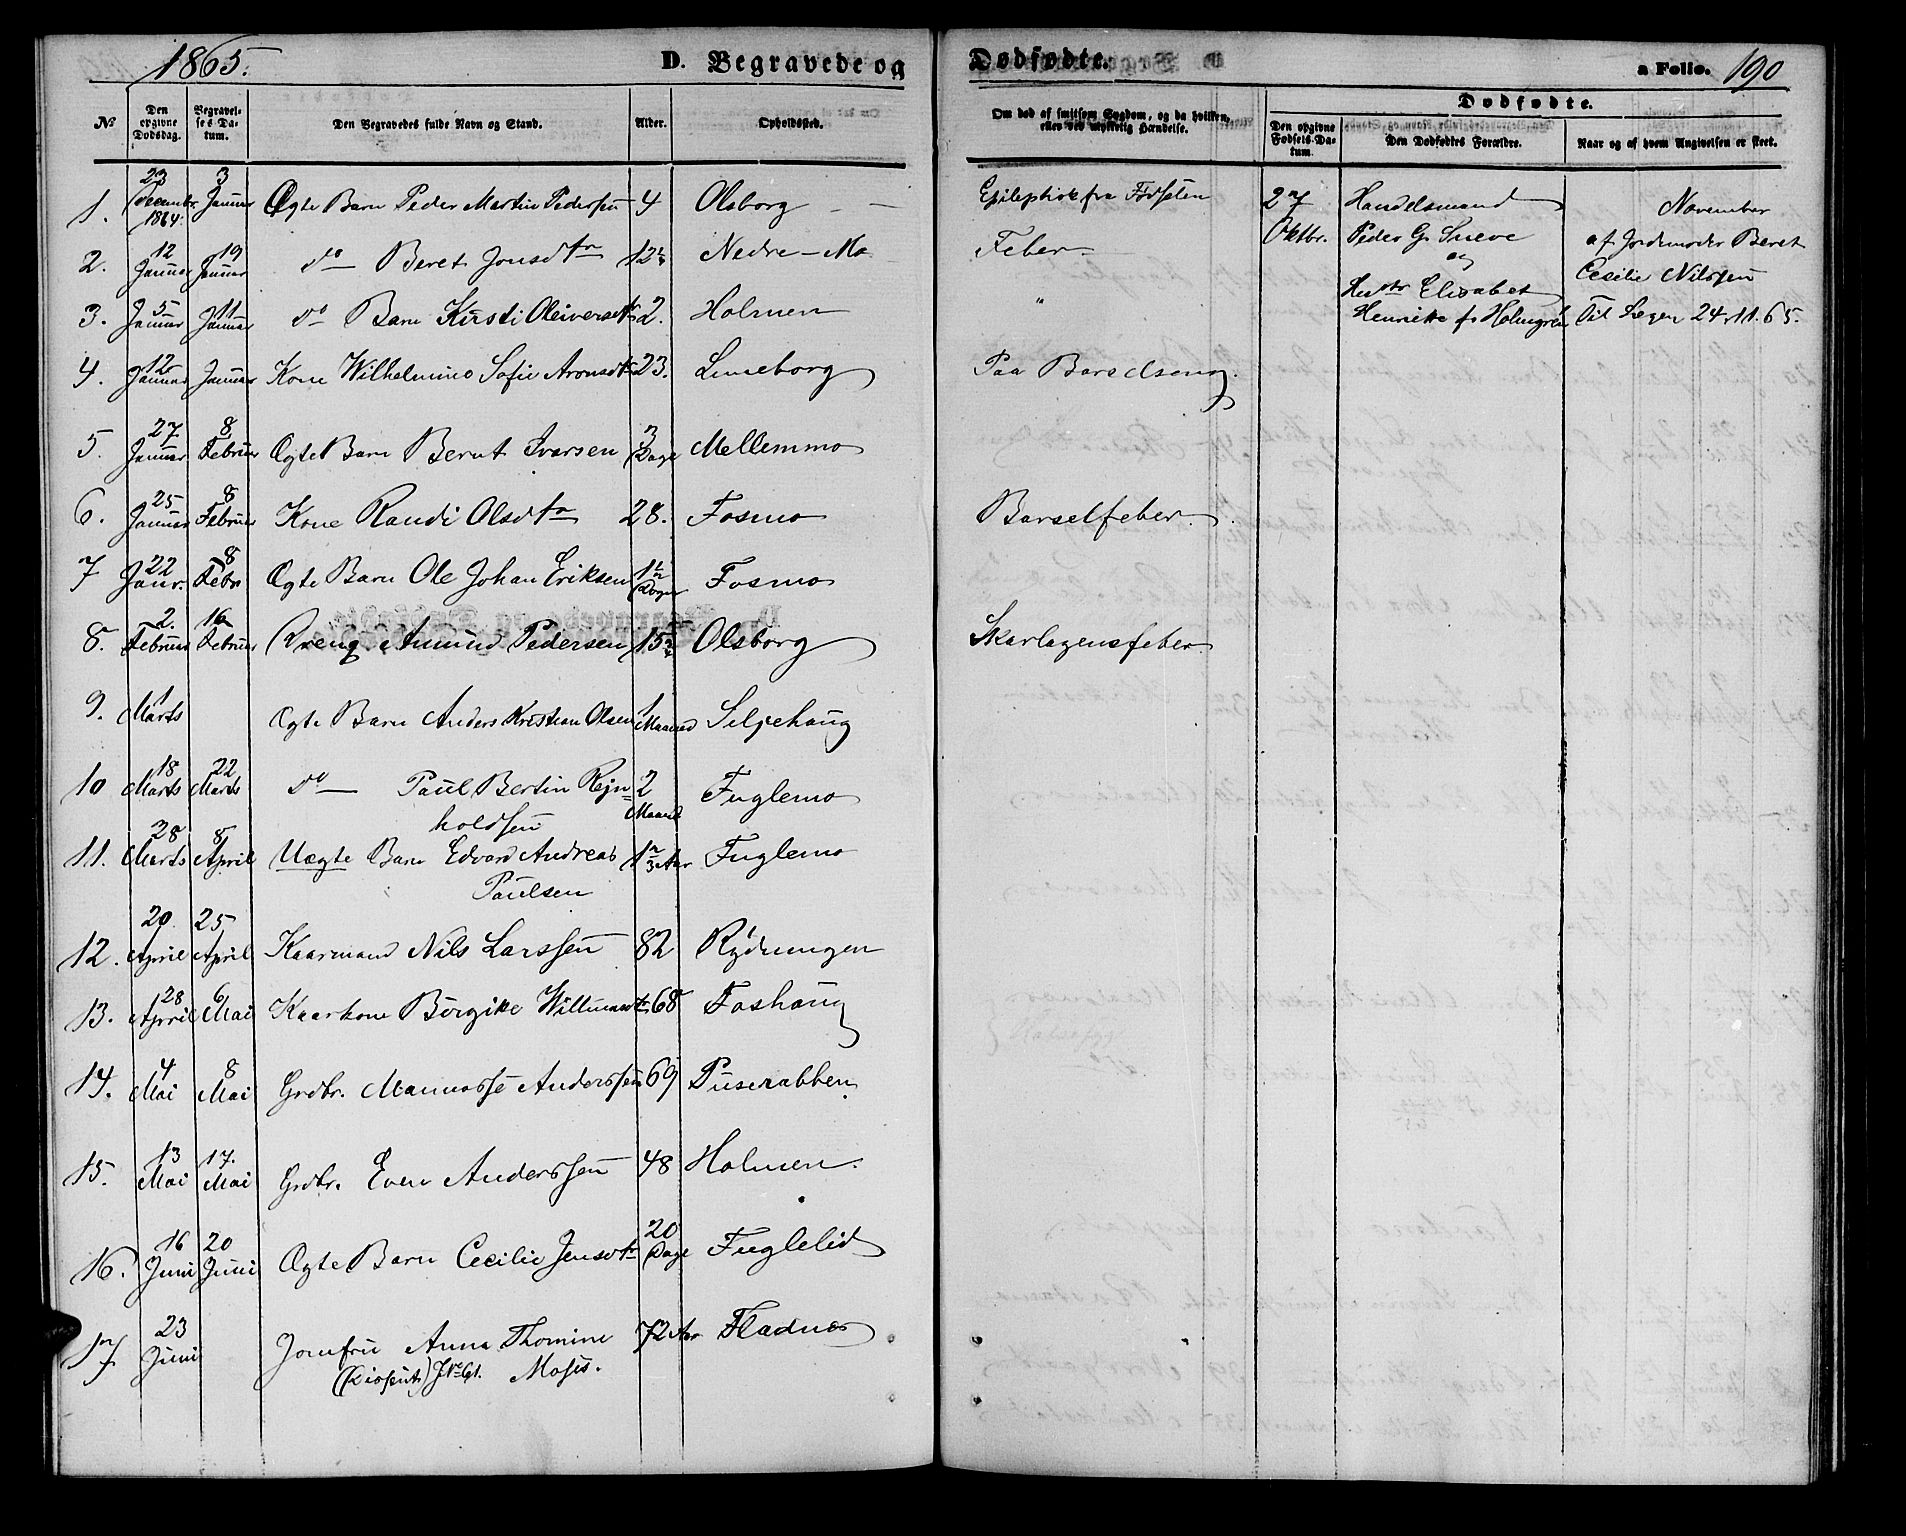 1865.
D. Begravede og
Dødfødte.
a Folio. 190
Dødfødte.
No
Den opgivne Dødsdag.
Begravelses-Datum.
Den Begravedes fulde Navn og Stand.
Alder.
Opholdssted.
Om død af smitsom Sygdom, og da hvilken, eller ved ulykkelig Hændelse.
Den opgivne Fødsels-Datum.
Den Dødfødtes Forældre.
Naar og af hvem Angivelsen er skeet.
1. 23 December 1864. 3 Januar Ægte Barn Peder Martin Pedersen 4 Olsborg Epileptisk fra Fødselen
2. 12 Januar 19 Januar do Beret Jonsdtr 12 Nedre-Mo Feber
3. 5 Januar 11 Januar do Barn Kirsti Oleiversdtr 2. Holmen "
4. 12 Januar Januar Kone Wilhelmine Sofie Aronsdtr 23. Luneborg Paa Barselseng.
5. 27 Januar 8 Februar Ægte Barn Bernt Ivarsen 3 Dage Mellemmo
6. 25 Januar 8 Februar Kone Randi Olsdtr 28. Fosmo Barselfeber.
7 22 Janr. 8 Febr Ægte Barn Ole Johan Eriksen 1½ Døgn Fosmo
8. 2. Februar 16 Februar Dreng. Amund Pedersen 15 Olsborg Skarlagensfeber.
9. 1 Marts Ægte Barn Anders Kristian Olsen 1 Maaned Seljehaug
10 18 Marts 22 Marts do Paul Bertin Rejn=
holdsen 2 Maand Fuglemo
11. 28 Marts 8 April Uægte Barn Edvard Andreas
Paulsen 1 2/3 Aar Fuglemo
12. 20 April 25 April Kaarmand Nils Larssen 82 Rydningen
13. 28 April 6 Mai Kaarkone Birgitte Willumsdtr 68 Foshaug
14. 4 Mai 8 Mai Grdbr. Mannasse Anderssen 69 Puserabben
15. 13 Mai 17. Mai Grdbr. Even Anderssen 48 Holmen.
16. 16 Juni 20 Juni Ægte Barn Cecilie Jensdtr 20 Dage Fuglelid
17 23 Juni Jomfru Anna Thomine
Moses. 72 Aar Fladnes
27 Oktbr.
Handelsmand
Peder G. Sneve
og
Hustr Elisabet
Henriette f. Holmgren
November
af Jordemoder Beret
Cecilie Nilssen
Til Legen 24.11.65.